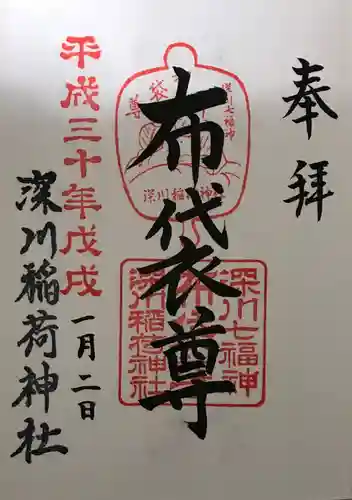 奉拝
深川七福神
布袋尊
深川稲荷神社
布袋尊
深川七福神
深川稲荷神社
平成三十年戊戌
一月二日
深川稲荷神社